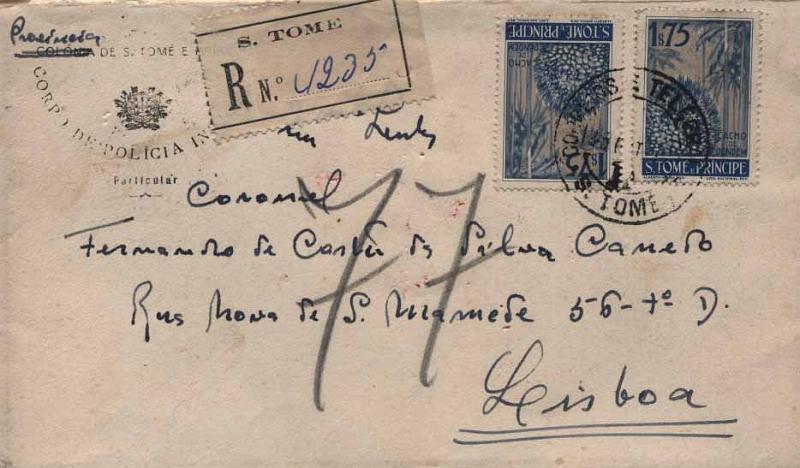 Provincia
COLÓNIA DE S. TOMÉ E
CORPO DE POLÍCIA IN
Particular
S. TOME
R N.º 4235
S. TOMÉ E PRÍNCIPE
CACHO
DENDEM
1$75
1$75
CACHO
DENDEM
S. TOMÉ E PRÍNCIPE
CORREIOS TELEG
S. TOMÉ
77
Coronel
Fernando de Castro da Silva Canedo
Rua Nova de S. Mamede 56-7º D.
Lisboa